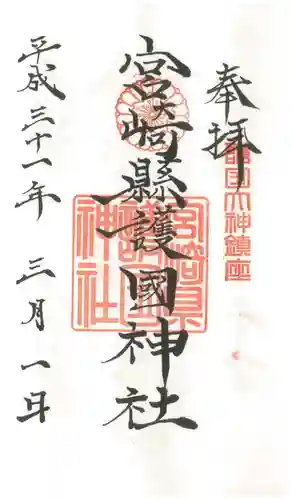 奉拝
護国大神鎮座
宮崎縣護國神社
宮崎県護国神社
平成三十一年 三月一日